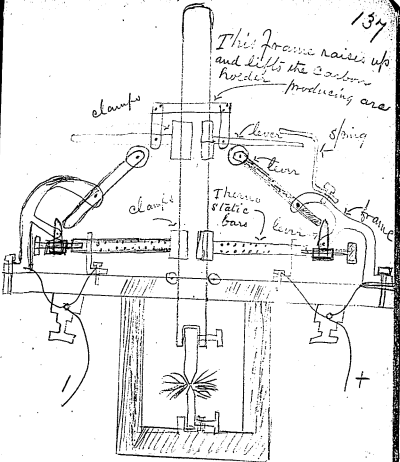 137
This Frame raises up
and lifts the Carbon
holder producing arc
clamps
lever
spring
lever
frame
clamps
Thermo
static
bars
lever
+